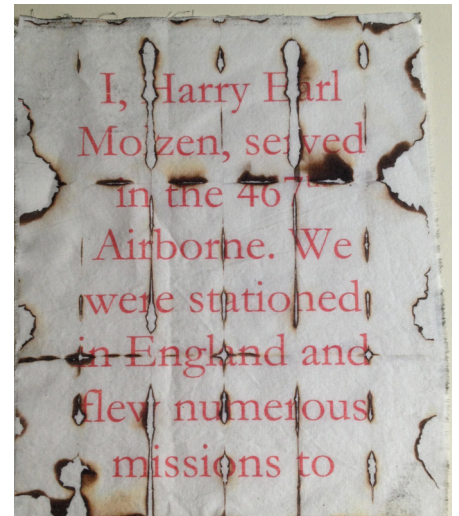 I, Harry Earl
Molzen, served
in the 467th
Airborne. We
were stationed
in England and
flew numerous
missions to